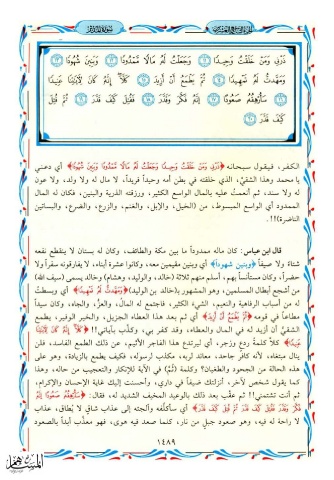 ذَرْنِى وَمَنْ خَلَقْتُ وَحِيدًا ۝١١ وَجَعَلْتُ لَهُۥ مَالًا مَّمْدُودًا ۝١٢ وَبَنِينَ شُهُودًا ۝١٣
وَمَهَّدتُّ لَهُۥ تَمْهِيدًا ۝١٤ ثُمَّ يَطْمَعُ أَنْ أَزِيدَ ۝١٥ كَلَّآ إِنَّهُۥ كَانَ لِـَٔايَٰتِنَا عَنِيدًا
۝١٦ سَأُرْهِقُهُۥ صَعُودًا ۝١٧ إِنَّهُۥ فَكَّرَ وَقَدَّرَ ۝١٨ فَقُتِلَ كَيْفَ قَدَّرَ ۝١٩ ثُمَّ قُتِلَ
كَيْفَ قَدَّرَ ۝٢٠
الكفر، فيقول سبحانه ﴿ذَرْنِى وَمَنْ خَلَقْتُ وَحِيدًا وَجَعَلْتُ لَهُۥ مَالًا مَّمْدُودًا وَبَنِينَ شُهُودًا﴾ أي دعني
يا محمد وهذا الشقيَّ، الذي خلقته في بطن أمه وحيداً فريداً، لا مال له ولا ولد، ولا عون
له ولا سند، ثم أنعمتُ عليه بالمال الواسع الكثير، ورزقته الذرية والبنين، فكان له المال
الممدود أي الواسع المبسوط، من (الخيل، والإبل، والغنم، والزرع، والضرع، والبساتين
الناضرة)!!.
قال ابن عباس: كان ماله ممدوداً ما بين مكة والطائف، وكان له بستان لا ينقطع نفعه
شتاءً ولا صيفاً ﴿وبنين شهوداً﴾ أي وبنين مقيمين معه، وكانوا عشرة أبناء، لا يفارقونه سفراً ولا
حضراً، وكان مستأنساً بهم، أسلم منهم ثلاثة (خالد، والوليد، وهشام) وخالد يسمى (سيف الله)
من أشجع أبطال المسلمين، وهو المشهور بـ(خالد بن الوليد) ﴿وَمَهَّدتُّ لَهُۥ تَمْهِيدًا﴾ أي وبسطتُ
له من أسباب الرفاهية والنعيم، الشيء الكثير، فاجتمع له المالُ، والعزُّ، والجاه، وكان سيداً
مطاعاً في قومه ﴿ثُمَّ يَطْمَعُ أَنْ أَزِيدَ﴾ أي ثم بعد هذا العطاء الجزيل، والخير الوفير، يطمع
الشقيُّ أن أزيد له في المال والعطاء، وقد كفر بي، وكذَّب بآياتي!! ﴿كَلَّآ إِنَّهُۥ كَانَ لِـَٔايَٰتِنَا
عَنِيدًا﴾ كلاَّ كلمةُ ردعٍ وزجر، أي ليرتدع هذا الفاجر الأثيم، عن ذلك الطمع الفاسد، فلن
ينال مبتغاه، لأنه كافر جاحد، معاند لربه، مكذب لرسوله، فكيف يطمع بالزيادة، وهو على
هذه الحالة من الجحود والطغيان؟ وكلمة (ثُمَّ) في الآية للإنكار والتعجيب من حاله، وهذا
كما يقول شخص لآخر، أنزلتك ضيفاً في داري، وأحسنت إليك غاية الإحسان والإكرام،
ثم أنت تشتمني!! ثم عقَّب بعد ذلك بالوعيد المخيف الشديد له، فقال: ﴿سَأُرْهِقُهُۥ صَعُودًا إِنَّهُۥ
فَكَّرَ وَقَدَّرَ فَقُتِلَ كَيْفَ قَدَّرَ ثُمَّ قُتِلَ كَيْفَ قَدَّرَ﴾ أي سأكلّفه وألجئه إلى عذاب شاقٍ لا يُطاق، عذاب
لا راحة له فيه، وهو صعود جبلٍ من نار، كلما صعد فيه هوى، فهو معذَّب أبداً بالصعود
١٤٨٩